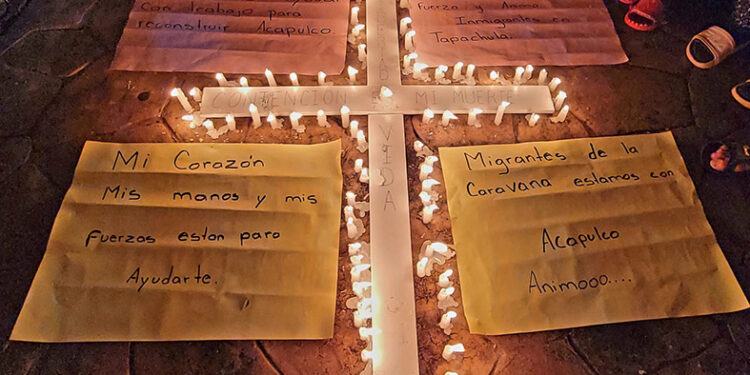 con trabajo para
reconstruir Acapulco
Fuerza y Animo
Inmigrantes en
Tapachula.
CONVENCIÓN
MI MUERTE
VIDA
Mi Corazón
Mis manos y mis
Fuerzas estan para
Ayudarte.
Migrantes de la
Caravana estamos con
Acapulco
Animooo....